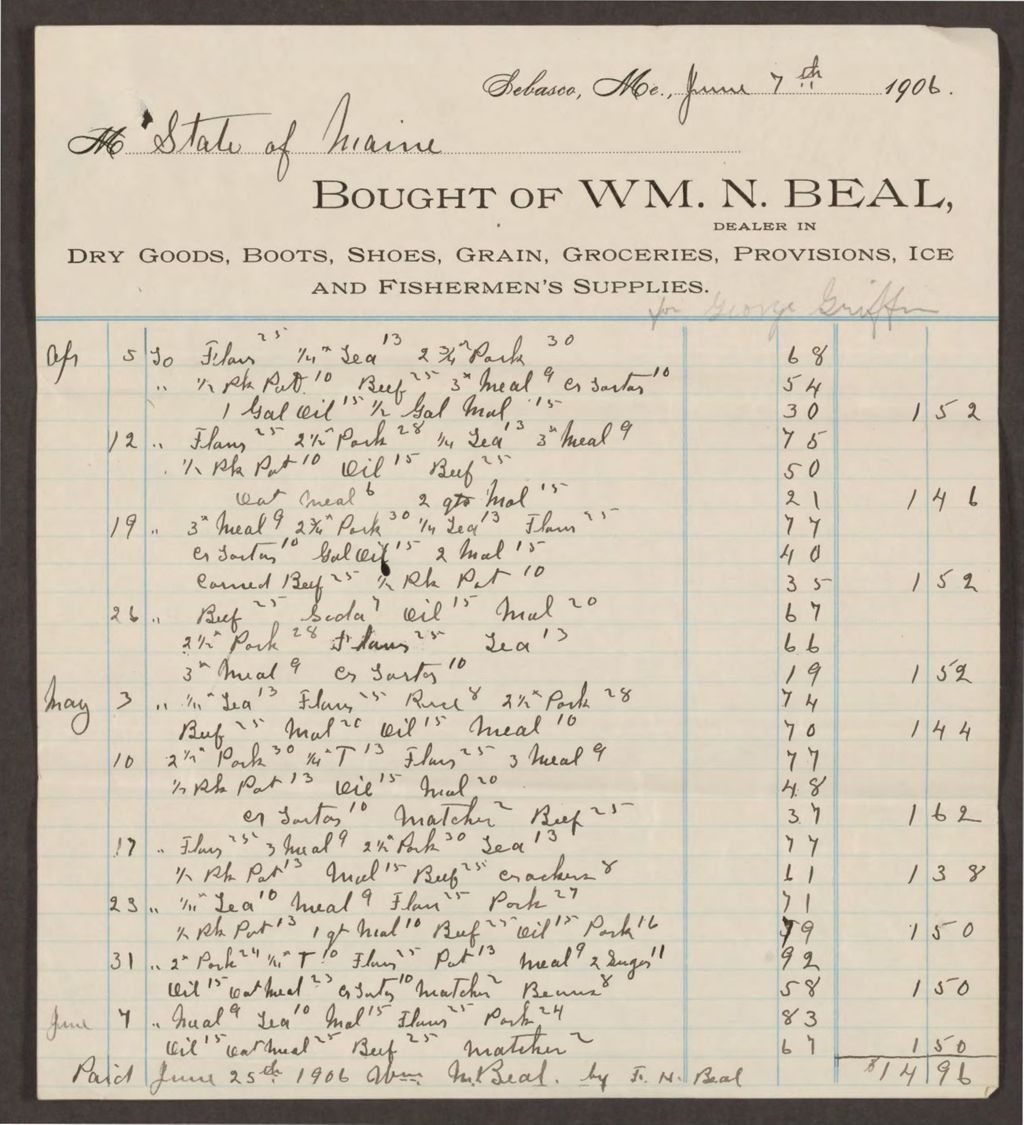 Sebasco, Me., June 7th 1906.
M State of Maine
BOUGHT OF WM. N. BEAL,
DEALER IN
DRY GOODS, BOOTS, SHOES, GRAIN, GROCERIES, PROVISIONS, ICE
AND FISHERMEN'S SUPPLIES.
for George Griffin
Apr 5 To Flour 25 1/4" Tea 13 2 3/4" Pork 30 68
" 1/2 Pk Pot 10 Beef 25 3" Meal 9 Cr Tartar 10 54
1 Gal Oil 15 1/2 Gal Mol 15 30 1 52
12 " Flour 25 2 1/2" Pork 28 1/4 Tea 13 3" Meal 9 75
" 1/2 Pk Pot 10 Oil 15 Beef 25 50
Oat Meal 6 2 qts Mol 15 21 1 46
19 " 3" Meal 9 2 3/4" Pork 30 1/4 Tea 13 Flour 25 77
Cr Tartar 10 Gal Oil 15 2 Mol 15 40
Corned Beef 25 1/2 Pk Pot 10 35 1 52
26 " Beef 25 Soda 7 Oil 15 Mol 20 67
2 1/2" Pork 28 Flour 25 Tea 13 66
3" Meal 9 Cr Tartar 10 19 1 52
May 3 " 1/4" Tea 13 Flour 25 Rice 8 2 1/2" Pork 28 74
Beef 25 Mol 20 Oil 15 Meal 10 70 1 44
10 2 1/2" Pork 30 1/4" T 13 Flour 25 3 Meal 9 77
1/2 Pk Pot 13 Oil 15 Mol 20 48
Cr Tartar 10 Matches 2 Beef 25 37 1 62
17 " Flour 25 3 Meal 9 2 1/2" Pork 30 Tea 13 77
1/2 Pk Pot 13 Mol 15 Beef 25 Crackers 8 61 1 38
23 " 1/4" Tea 10 Meal 9 Flour 25 Pork 27 71
1/2 Pk Pot 13 1 qt Mol 10 Beef 25 Oil 15 Pork 16 79 1 50
31 " 2" Pork 24 1/4" T 10 Flour 25 Pot 13 Meal 9 2 Sugar 11 92
Oil 15 Oat Meal 23 Cr Tartar 10 Matches 2 Beans 8 58 1 50
June 7 " Meal 9 Tea 10 Mol 15 Flour 25 Pork 24 83
Oil 15 Oat Meal 25 Beef 25 Matches 2 67 1 50
Paid June 25th 1906 Wm. N. Beal. by F. N. Beal $14 96